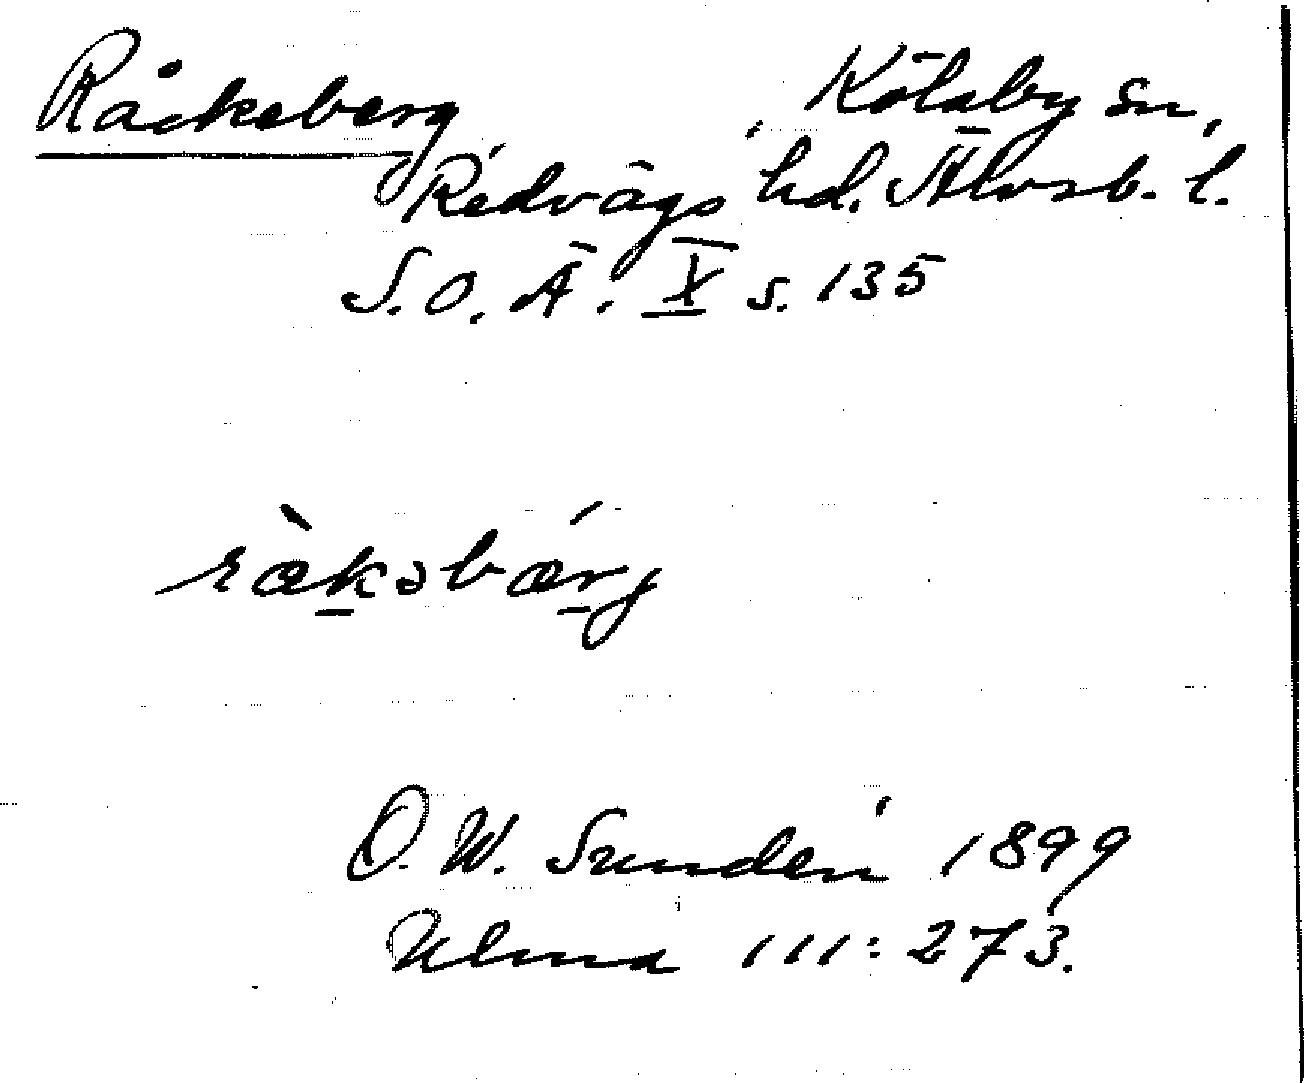 Räckeberg, Kölaby sn,
Redvägs hd. Älvsb. l.
S. O. Ä. X s. 135
ræ̀kəbærg
O. W. Sundén 1899
Ulma 111:273.